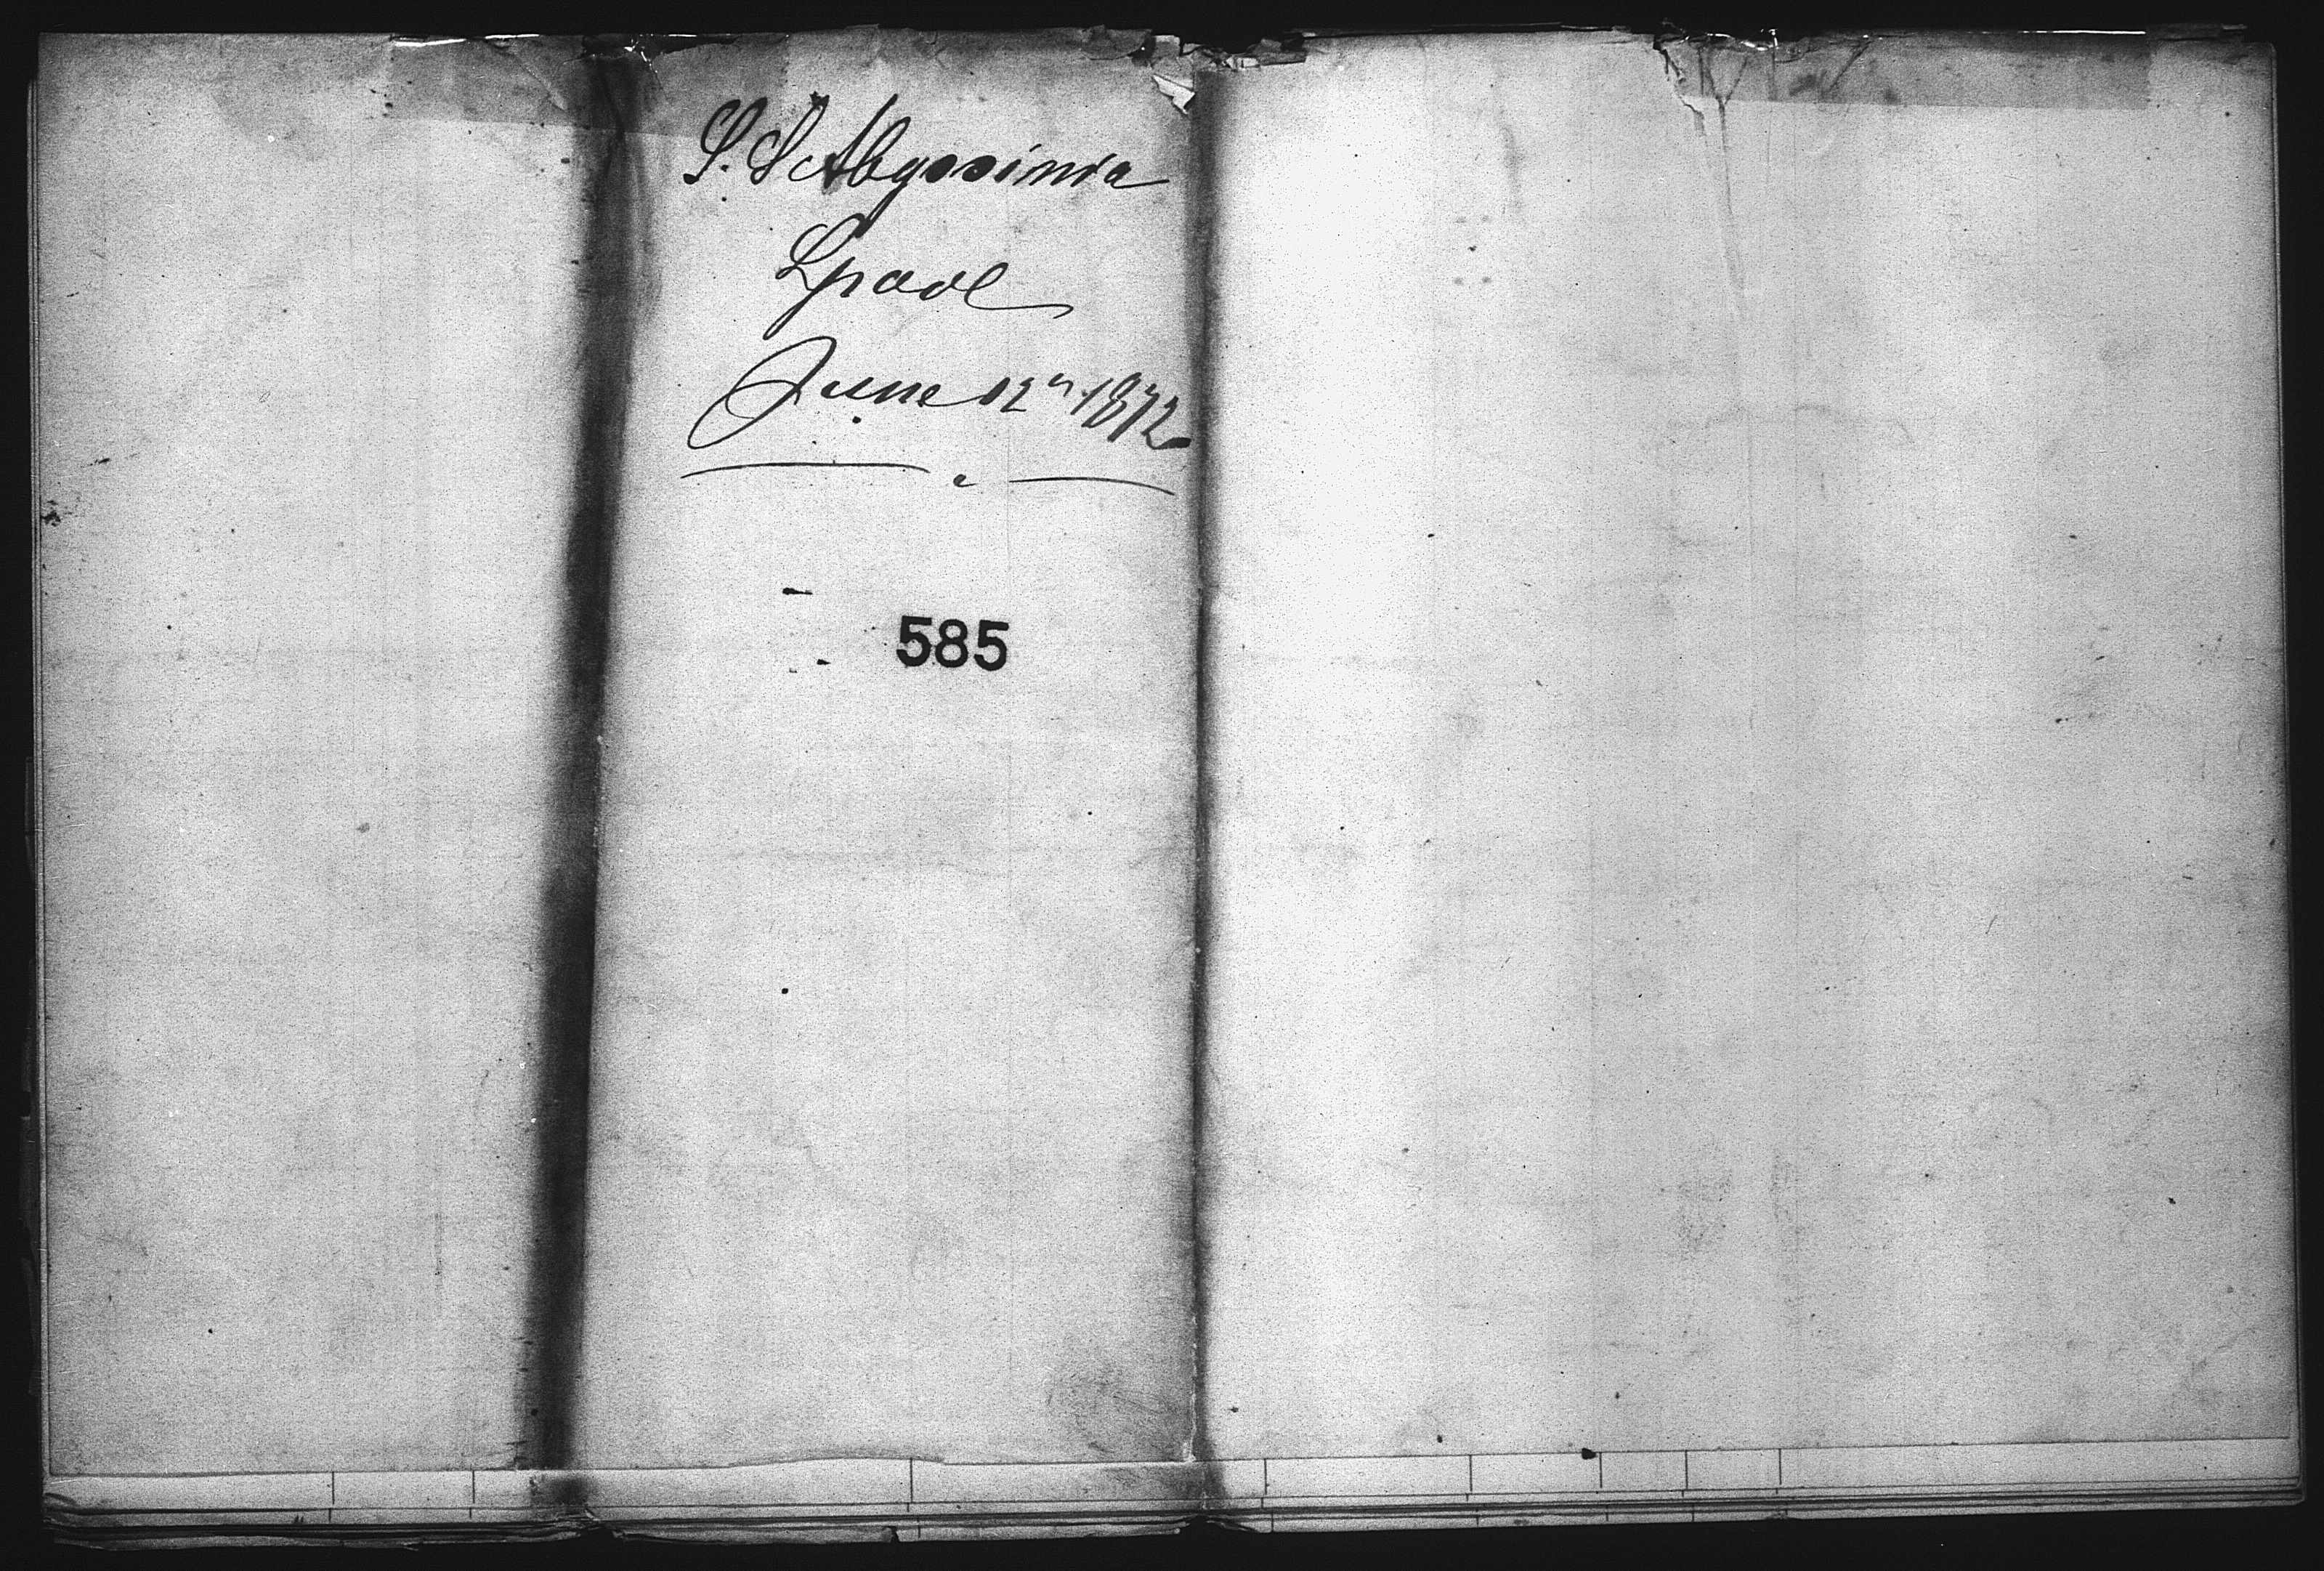 S. S Abyssinia
Lpool
June 12th 1872
585